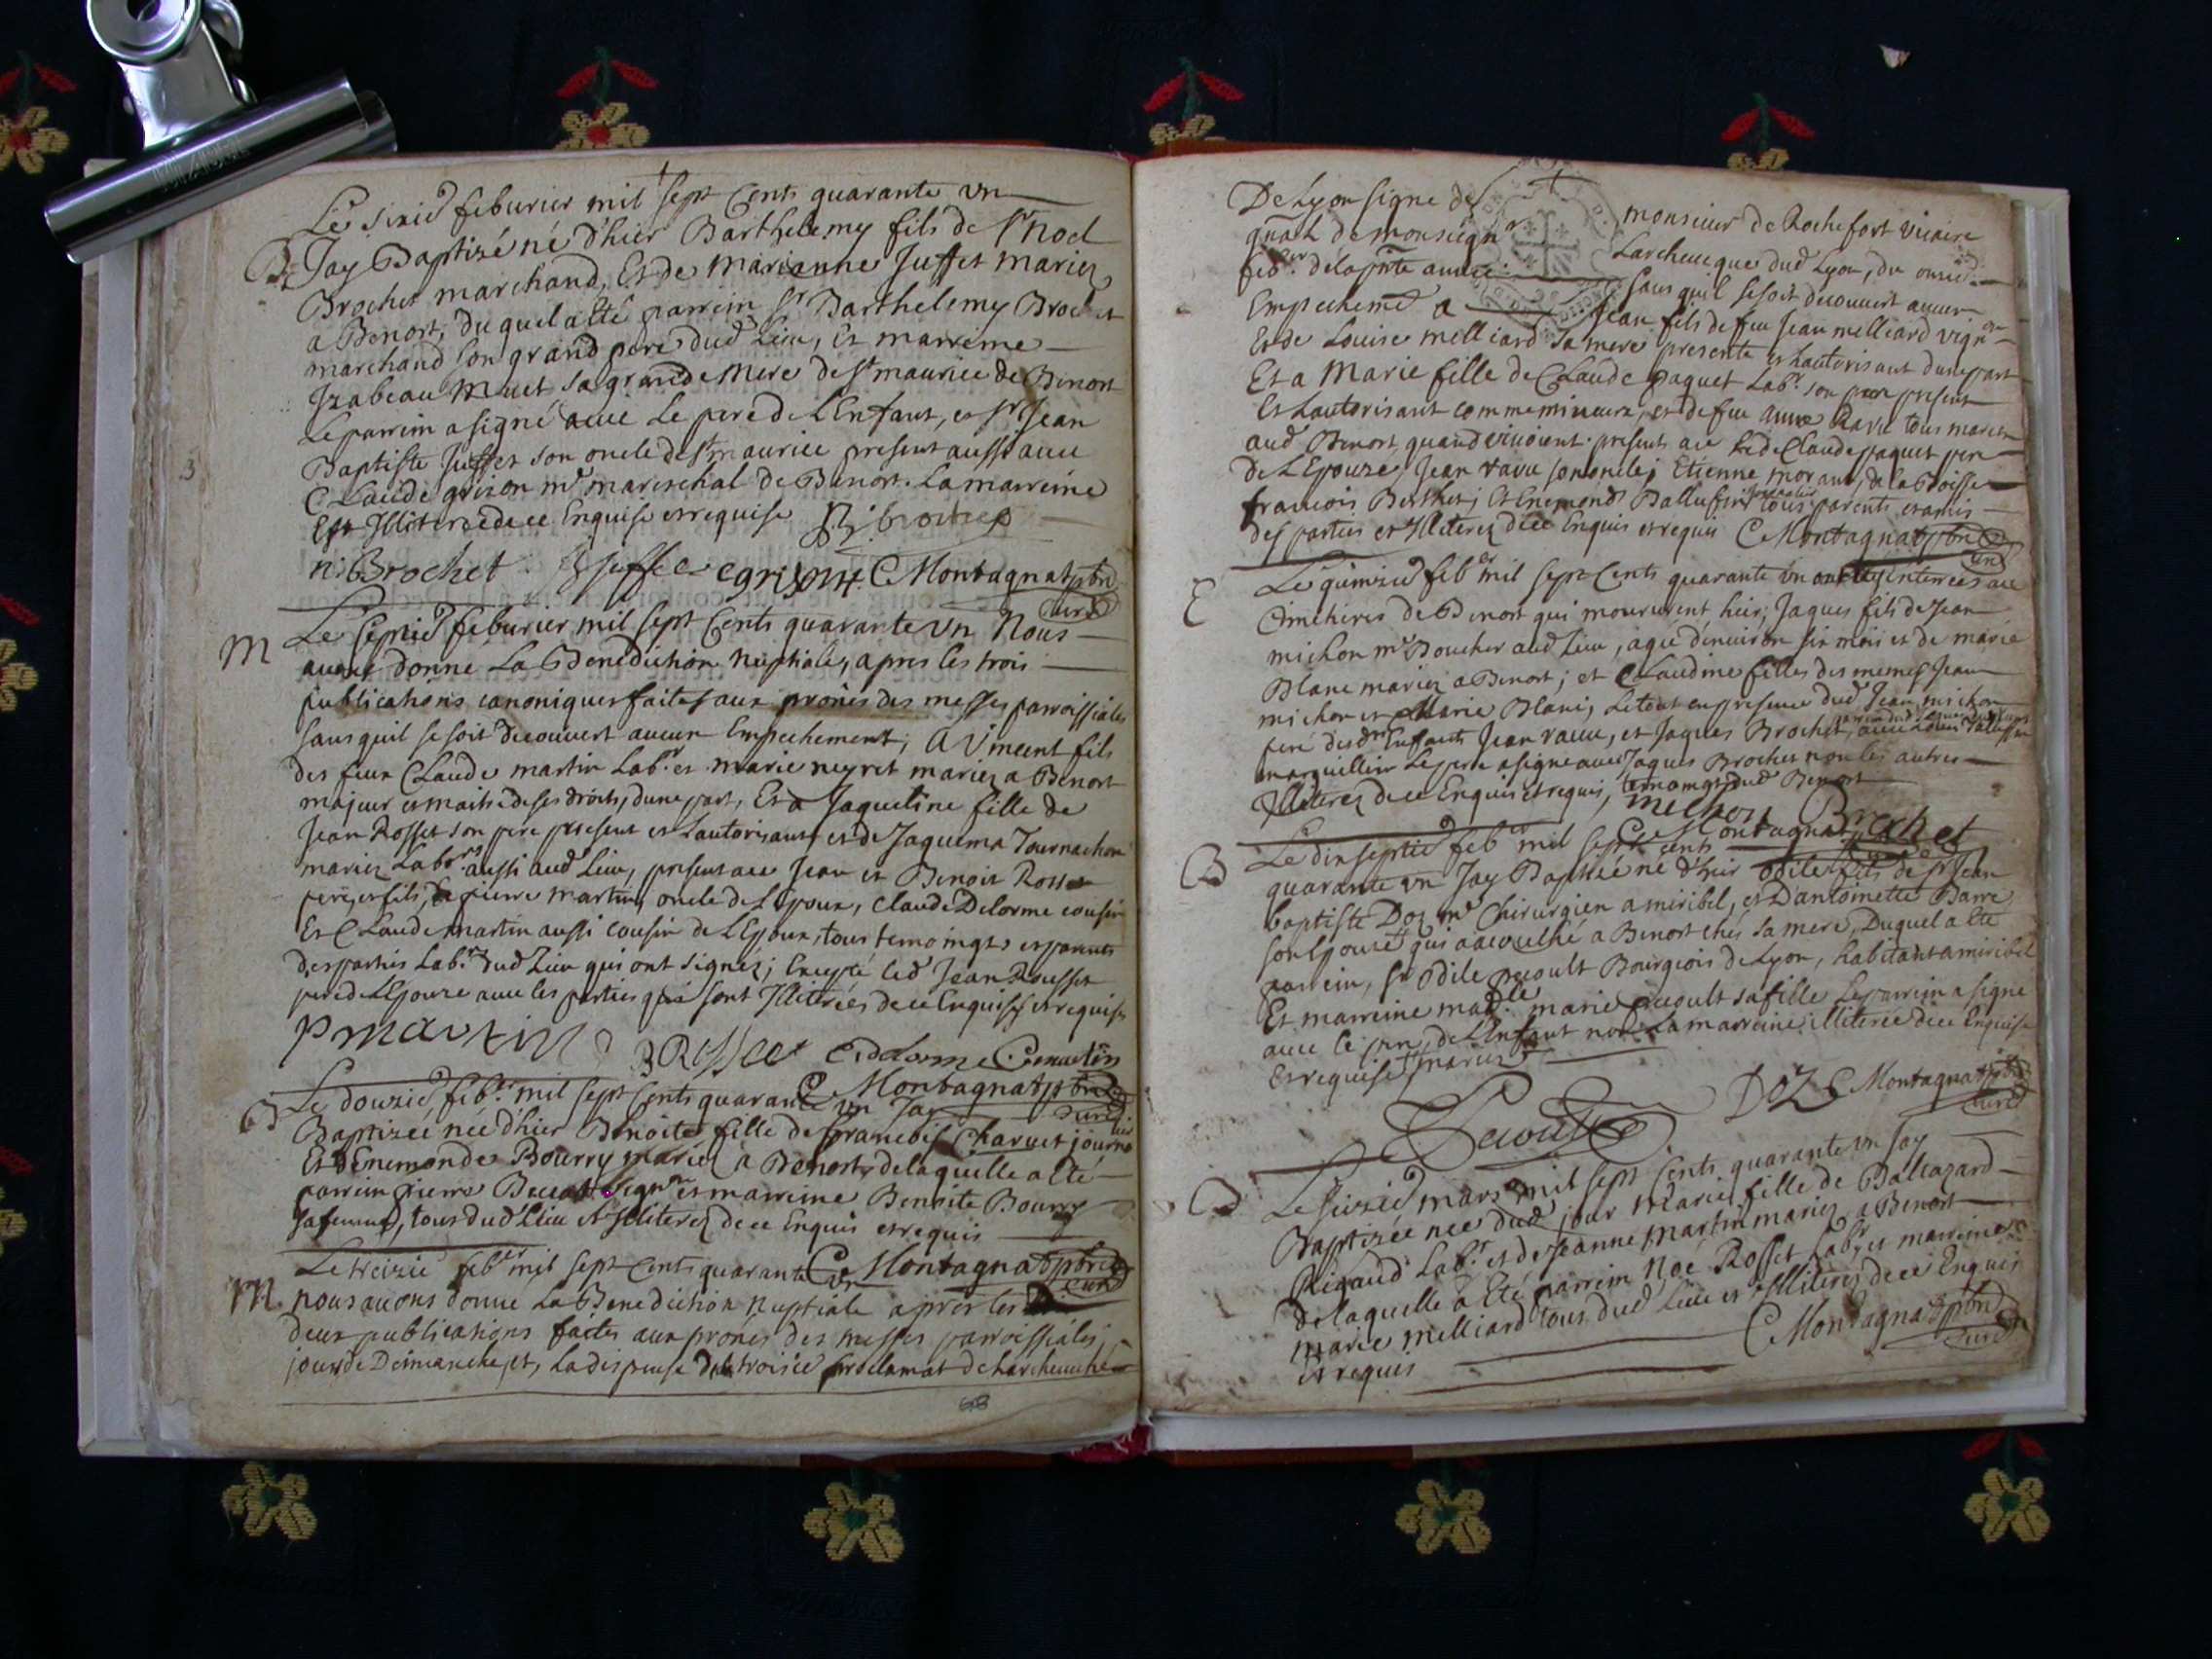 Le sixie feburier mil sept Cents quarante un
B Jay Baptizé né d'hier Barthelemy fils de Sr Noel
Brochet marchand, Et de Marianne Juffet mariez
a Benost, du quel a Eté parrein Sr Barthelemy Brochet
marchand son grand pere dud Lieu, Et marreine
Izabeau Muet sa grande Mere de St maurice de Benost
Le parrein a signé avec Le pere de L'Enfant, et Sr Jean
Baptiste Juffet son oncle de St maurice present aussi avec
Claude grison me mareschal de Benost. La marreine
Est Illiteree de ce Enquise et requise B: brochet
n: Brochet J juffet c grison C Montagnat pbre
curé
M Le septie feburier mil sept Cents quarante un Nous
avons donne La Benediction Nuptiale, apres les trois
publications canoniques faites aux prones des messes parroissiales
sans quil se soit decouvert aucun Empechement, A Vincent fils
des feux Claude martin Labr. et marie neyret mariez a Benost
majeur et maitre de ses droits, dune part, Et a Jaqueline fille de
Jean Rosset son pere present et Lautorisant et de Jaquema Tournachon
mariez Labrs aussi aud Lieu, presents avec Jean et Benoit Rosset
pere, et fils, pierre martin, oncle de L'Epoux, Claude Delorme cousin
Et Claude martin aussi cousin de L'Epoux, tous temoings et parents
des parties Labrs dud Lieu qui ont signez; Excepté led Jean Rousset
pere de L'Epouze avec les parties qui sont Illiterées de ce Enquises et requises
P martin B Rosset C delorme C martin
C Montagnat pbre
curé
B Le douzie febr. mil sept Cents quarante un Jay
Baptizée née d'hier Benoite, fille de francois Charvet journalier
Et d'Enemonde Bourry mariez a Benost, de laquelle a Eté
parrein pierre vigner et marreine Benoite Bourry
sa femme, tous dud Lieu et Illiterez de ce Enquis et requis
C Montagnat pbre
curé
M Le treizie febr mil sept Cents quarante un
nous avons donne La Benediction Nuptiale après les
deux publications faites aux prones des messes parroissiales
jours de Dimanche, et, La dispense de la troisie proclamat de Larcheveché
68
De Lyon signe de monsieur de Rochefort vicaire
gnal de monseignr Larcheveque dud Lyon, du onzie
febr. de la pnte année sans quil se soit decouvert aucun
Empecheme a Jean fils de feu Jean milliard vigner
Et de Louise milliard sa mere presente et Lautorisant dune part
Et a Marie fille de Claude paquet Labr. son pere present
Et Lautorisant comme mineure, et de feue anne Ravu tous mariez
aud Benost, quand vivoient. presents avec led Claude paquet pere
de L'Epouze, Jean ravu son oncle; Etienne morand de la Boisse
francois Berthet; Et Enemond Ballufin tous parents et amis
des parties et Illiterez de ce Enquis et requis C Montagnat pbre
curé
E Le quinzie febr mil sept Cents quarante un ont eté enterrés au
Cimetieres de Benost qui moururent hier, Jaques fils de Jean
michon me Boucher aud Lieu, agé d'environ six mois et de marie
Blanc mariez a Benost; et Claudine filles des memes Jean
michon et Marie Blanc, Le tout en presence dud Jean michon
pere desd Enfants Jean ravu, et Jaques Brochet, avec
marguillier Le pere a signe avec Jaques Brochet non les autres
Illiterez de ce Enquis et requis, temoings dud Benost
michon Brochet
C Montagnat pbre
B Le dix septie febr mil sept cents
quarante un Jay Baptizé né d'hier odile fils de Sr Jean
baptiste Doz me Chirurgien a miribel, et D'antoinette Barre
son Epouze qui a accouché a Benost chés sa mere, Duquel a Eté
parrein, Sr odile Decoult Bourgeois de Lyon, habitant a miribel
Et marreine madlle marie Decoult sa fille Le parrein a signe
avec le pere de L'Enfant non La marreine illiteree de ce Enquise
et requise mariez
Decoult DOZ C Montagnat pbre
curé
B Le seizie mars mil sept Cents quarante un Jay
Baptizée née dud jour Marie, fille de Baltazard
Rigaud Labr. et de Jeanne Martin mariez a Benost
de laquelle a Eté parrein Noé Rosset Labr, et marreine
marie milliard tous dud Lieu et Illiterés de ce Enquis
et requis C Montagnat pbre
curé